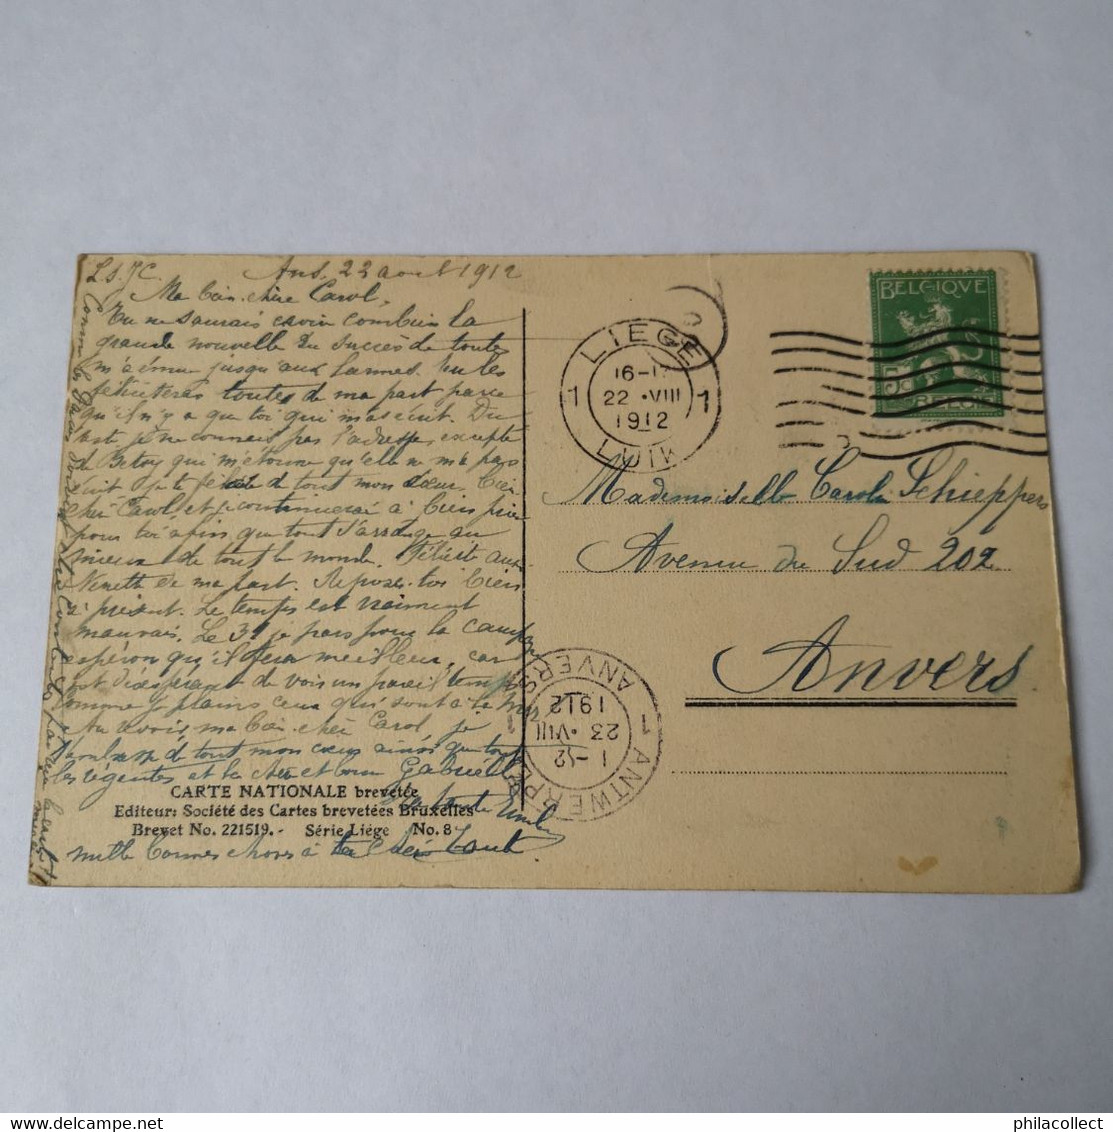 L. S. J. C. Ans, 22 août 1912
Ma bien chère Carol,
Tu ne saurais croire combien la
grande nouvelle du succès de toutes
m'a émue jusqu'aux larmes. Tu les
féliciteras toutes de ma part parce
qu'il n'y a que toi qui m'as écrit. Du
rest, je ne connais pas l'adresse, excepté
de Betsy qui m'étonne qu'elle ne m'a pas
écrit. Je te de tout mon cœur, bien
chère Carol, et je continuerai à bien prier
pour toi afin que tout s'arrange au
mieux de tout le monde. Félicite aussi
de ma part. Repose-toi bien
à présent. Le temps est vraiment
mauvais. Le 31 je pars pour la campagne
espérons qu'il fera meilleur, car
c'est désespérant de voir un pareil temps
comme je plains ceux qui sont à la mer
Au revoir, ma bien chère Carol, je
t'embrasse de tout mon cœur ainsi que toutes
les régentes et la chère et bonne Gabrielle
mille bonnes choses à ta chère tante
CARTE NATIONALE brevetée
Editeur: Société des Cartes brevetées Bruxelles
Brevet No. 221519. - Série Liége No. 8
LIEGE
1 1
16-17
22 • VIII
1912
LUIK
BELGIQUE
5c
BELGIË
Mademoiselle Carola Schieppers
Avenue du Sud 202
Anvers
ANVERS
1912
23 • VIII
1-12
1 1
ANTWERPEN
philacollect